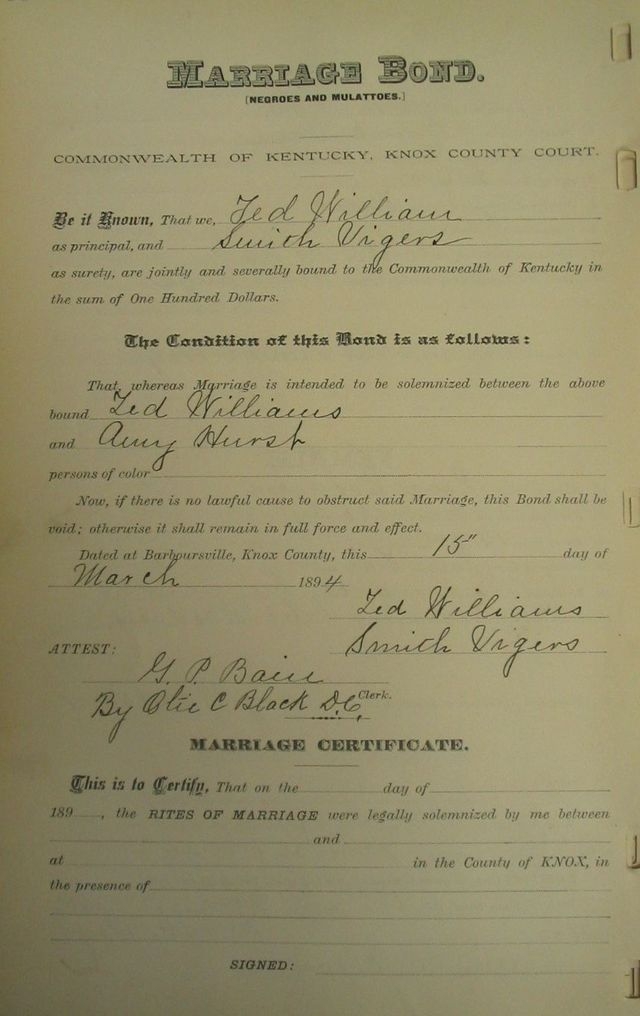 MARRIAGE BOND.
[NEGROES AND MULATTOES.]
COMMONWEALTH OF KENTUCKY, KNOX COUNTY COURT.
Be it Known, That we, Ted William
as principal, and Smith Vigers
as surety, are jointly and severally bound to the Commonwealth of Kentucky in
the sum of One Hundred Dollars.
The Condition of this Bond is as follows:
That, whereas Marriage is intended to be solemnized between the above
bound Ted Williams
and Amy Hurst
persons of color
Now, if there is no lawful cause to obstruct said Marriage, this Bond shall be
void; otherwise it shall remain in full force and effect.
Dated at Barboursville, Knox County, this 15" day of
March 1894
Ted Williams
Smith Vigers
ATTEST:
G. P. Bain
By Olie C Black D.C. Clerk.
MARRIAGE CERTIFICATE.
This is to Certify, That on the day of
189 , the RITES OF MARRIAGE were legally solemnized by me between
and
at in the County of KNOX, in
the presence of
SIGNED: